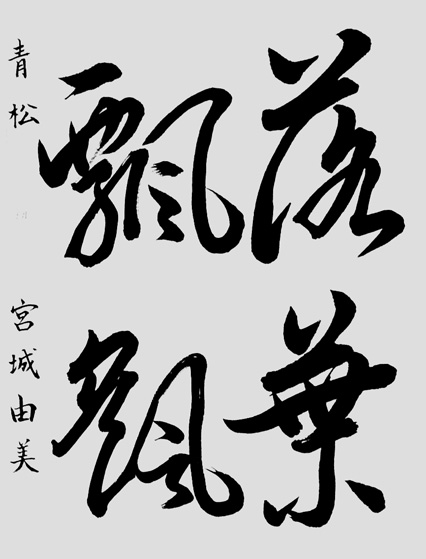 落葉
飄颻
青松 宮城由美